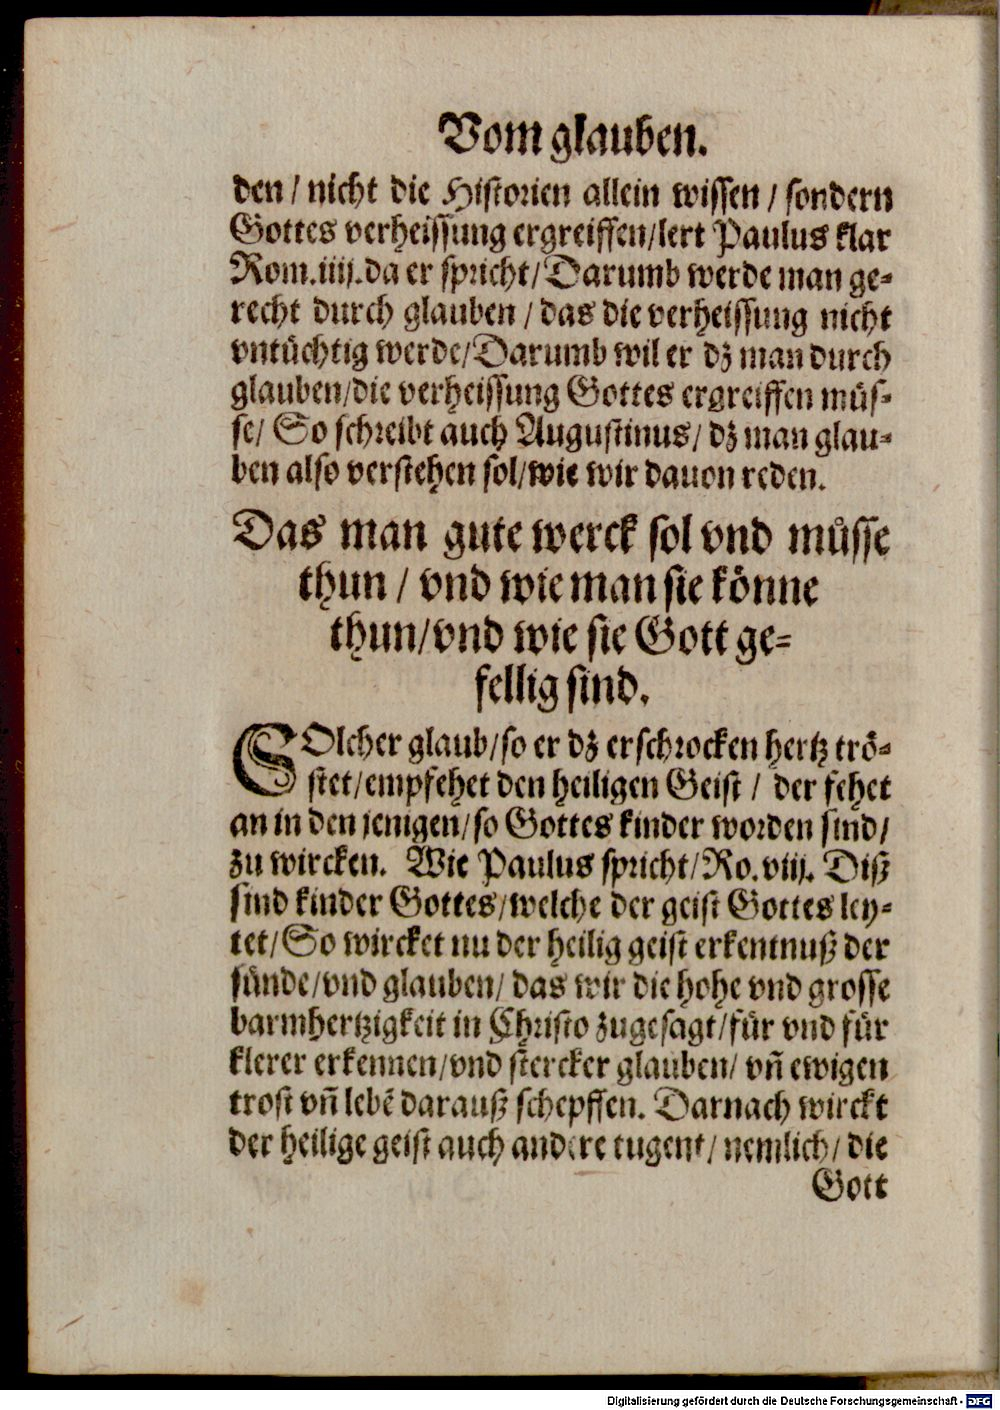 Vom glauben.
den / nicht die Historien allein wissen / sondern
Gottes verheissung ergreiffen/lert Paulus klar
Rom.iiij.da er spricht/Darumb werde man ge-
recht durch glauben / das die verheissung nicht
vntüchtig werde/Darumb wil er dz man durch
glauben/die verheissung Gottes ergreiffen müs-
se/ So schreibt auch Augustinus/ dz man glau-
ben also verstehen sol/wie wir dauon reden.
Das man gute werck sol vnd müsse
thun / vnd wie man sie könne
thun/vnd wie sie Gott ge-
fellig sind.
SOlcher glaub/so er dz erschrocken hertz trö-
stet/empfehet den heiligen Geist / der fehet
an in den jenigen/so Gottes kinder worden sind/
zu wircken. Wie Paulus spricht/Ro.viij. Diß
sind kinder Gottes/welche der geist Gottes ley-
tet/So wircket nu der heilig geist erkentnuß der
sünde/vnd glauben/ das wir die hohe vnd grosse
barmhertzigkeit in Christo zugesagt/für vnd für
klerer erkennen/vnd stercker glauben/ vñ ewigen
trost vñ lebẽ darauß schepffen. Darnach wirckt
der heilige geist auch andere tugent/ nemlich/ die
Gott
Digitalisierung gefördert durch die Deutsche Forschungsgemeinschaft - DFG